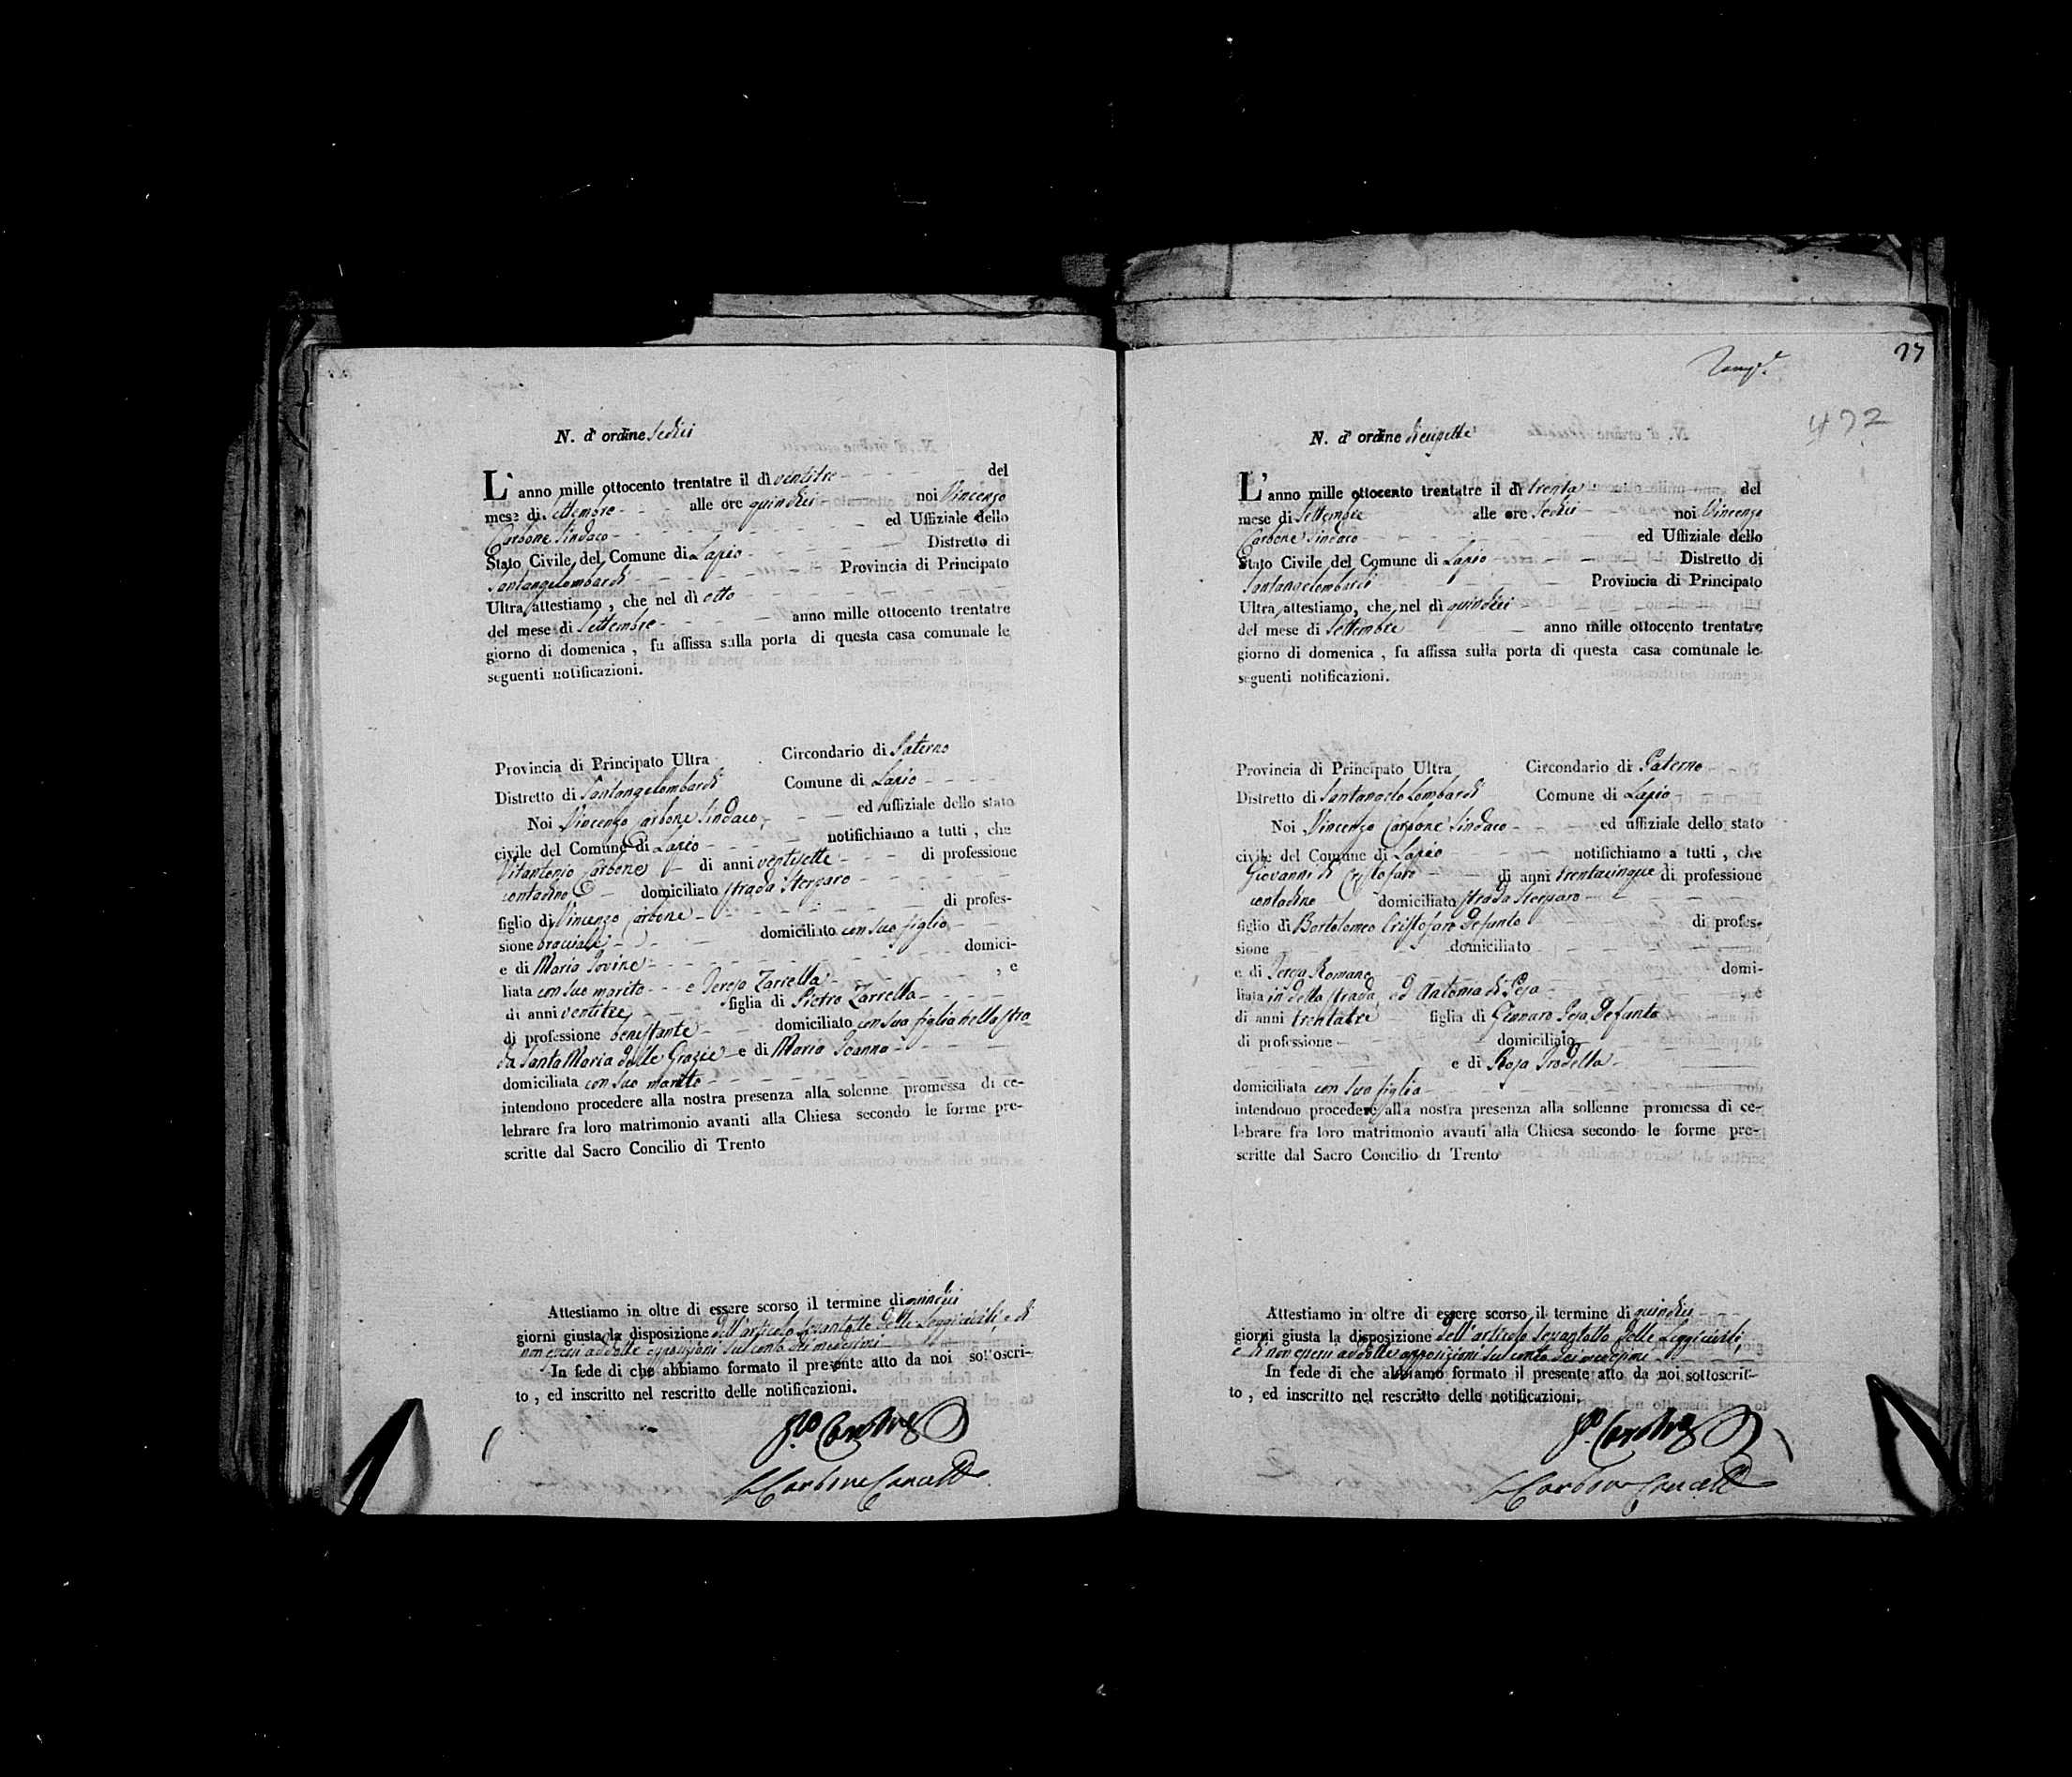 N. d' ordine Sedici
L' anno mille ottocento trentatre il dì ventitre del
mese di Settembre alle ore quindici noi Vincenzo
Carbone Sindaco ed Uffiziale dello
Stato Civile del Comune di Lapio Distretto di
Santangelombardi Provincia di Principato
Ultra attestiamo, che nel dì otto
del mese di Settembre anno mille ottocento trentatre
giorno di domenica, fu affissa sulla porta di questa casa comunale le
seguenti notificazioni.
Provincia di Principato Ultra Circondario di Paterno
Distretto di Santangelombardi Comune di Lapio
Noi Vincenzo Carbone Sindaco ed uffiziale dello stato
civile del Comune di Lapio notifichiamo a tutti, che
Vitantonio Carbone di anni ventisette di professione
contadino domiciliato strada Stergaro
figlio di Vincenzo Carbone di profes-
sione bracciale domiciliato con suo figlio
e di Maria Iovine domici-
liata con suo marito e Teresa Zarrella , e
di anni ventitre figlia di Pietro Zarrella
di professione benestante domiciliato con sua figlia nella stra-
da Santa Maria delle Grazie e di Maria Ioanna
domiciliata con suo marito
intendono procedere alla nostra presenza alla solenne promessa di ce-
lebrare fra loro matrimonio avanti alla Chiesa secondo le forme pre-
scritte dal Sacro Concilio di Trento
Attestiamo in oltre di essere scorso il termine di quindici
giorni giusta la disposizione dell'articolo sessantotto delle Leggi civili, e di
non essersi addotte opposizioni sul conto dei medesimi
In fede di che abbiamo formato il presente atto da noi sottoscri-
to, ed inscritto nel rescritto delle notificazioni.
Carbone
Carbone Cancell.
77
472
N. d' ordine diecisette
L' anno mille ottocento trentatre il dì trenta del
mese di Settembre alle ore Sedici noi Vincenzo
Carbone Sindaco ed Uffiziale dello
Stato Civile del Comune di Lapio Distretto di
Santangelombardi Provincia di Principato
Ultra attestiamo, che nel dì quindici
del mese di Settembre anno mille ottocento trentatre
giorno di domenica, fu affissa sulla porta di questa casa comunale le
seguenti notificazioni.
Provincia di Principato Ultra Circondario di Paterno
Distretto di Santangelo Lombardi Comune di Lapio
Noi Vincenzo Carbone Sindaco ed uffiziale dello stato
civile del Comune di Lapio notifichiamo a tutti, che
Giovanni di Cristofaro di anni trentacinque di professione
contadino domiciliato strada Stergaro
figlio di Bartolomeo Cristofaro Defunto di profes-
sione domiciliato
e di Teresa Romano domi-
liata in detta strada, ed Antonia di Pesa , e
di anni trentatre figlia di Gennaro Pesa Defunto
di professione domiciliato
e di Rosa Trodella
domiciliata con sua figlia
intendono procedere alla nostra presenza alla sollenne promessa di ce-
lebrare fra loro matrimonio avanti alla Chiesa secondo le forme pre-
scritte dal Sacro Concilio di Trento
Attestiamo in oltre di essere scorso il termine di quindici
giorni giusta la disposizione dell'articolo sessantotto delle Leggi civili,
e di non essersi addotte opposizioni sul conto dei medesimi
In fede di che abbiamo formato il presente atto da noi sottoscrit-
to, ed inscritto nel rescritto delle notificazioni.
Carbone
Carbone Cancell.